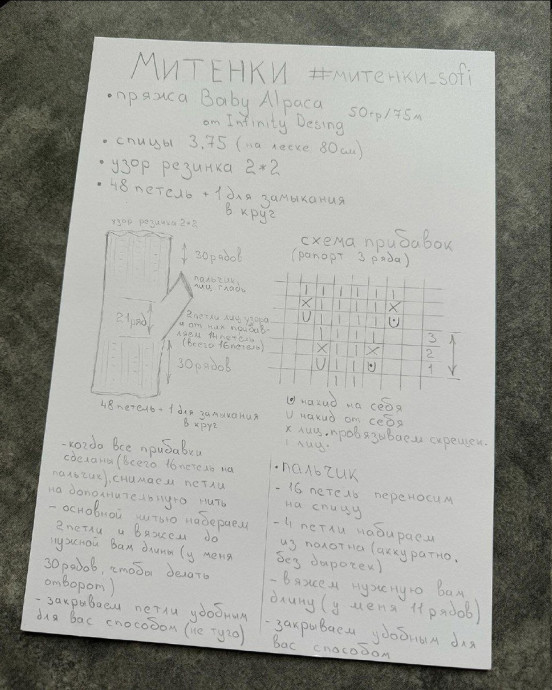 МИТЕНКИ #митенки_sofi
• пряжа Baby Alpaca 50гр/75м
от Infinity Desing
• спицы 3,75 (на леске 80см)
• узор резинка 2*2
• 48 петель + 1 для замыкания
в круг
узор-резинка 2*2
30рядов
пальчик,
лиц гладь
21ряд
2петли лиц узора
и от них прибав-
ляем 14петель
(всего 16петель)
30рядов
48 петель + 1 для замыкания
в круг
схема прибавок
(рапорт 3 ряда)
3
2
1
накид на себя
U накид от себя
x лиц. провязываем скрещен.
ı лиц.
-когда все прибавки
сделаны(всего 16петель на
пальчик),снимаем петли
на дополнительную нить
- основной нитью набераем
2петли и вяжем до
нужной вам длины (у меня
30рядов, чтобы делать
отворот)
- закрываем петли удобным
для вас способом (не туго)
• пальчик
- 16 петель переносим
на спицу
- 4 петли набираем
из полотна (аккуратно,
без дырочек)
- вяжем нужную вам
длину (у меня 11 рядов)
- закрываем удобным для
вас способом